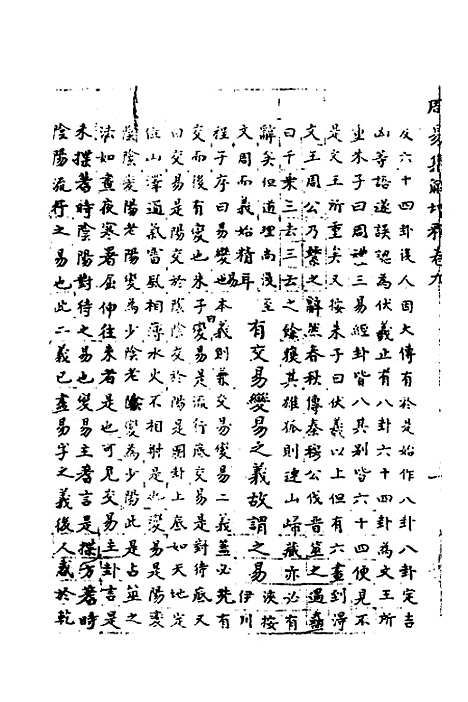 周易集解增釋卷九
及六十四卦後人因大傳有於是始作八卦八卦定吉
凶等語遂誤認為伏羲止有八卦六十四卦為文王所
重朱子曰周禮三易經卦皆八其別皆六十四便見不
是文王所重矣又按朱子曰伏羲以上但有六畫到得
文王周公乃繫之辭然春秋傳秦穆公伐晉筮之遇蠱
曰千乘三去三去之餘獲其雄狐則連山歸藏亦必有
辭矣但道理尚淺至
文周而義始精耳
有交易變易之義故謂之易
淡按
伊川
程子序曰易變易也本義則兼交易變易二義蓋必先有
交而後有變也朱子曰變易是流行底交易是對待底又
曰交易是陽交於陰陰交於陽是圖卦上底如天地定
位山澤通氣雷風相薄水火不相射是也變易是陽變
陰陰變陽老陽變為少陰老陰變為少陽此是占筮之
法如晝夜寒暑屈伸往來者是也可見交易主卦言是
未揲蓍時陰陽對待之易也變易主蓍言是揲方蓍時
陰陽流行之易也此二義已盡易字之義後人惑於乾